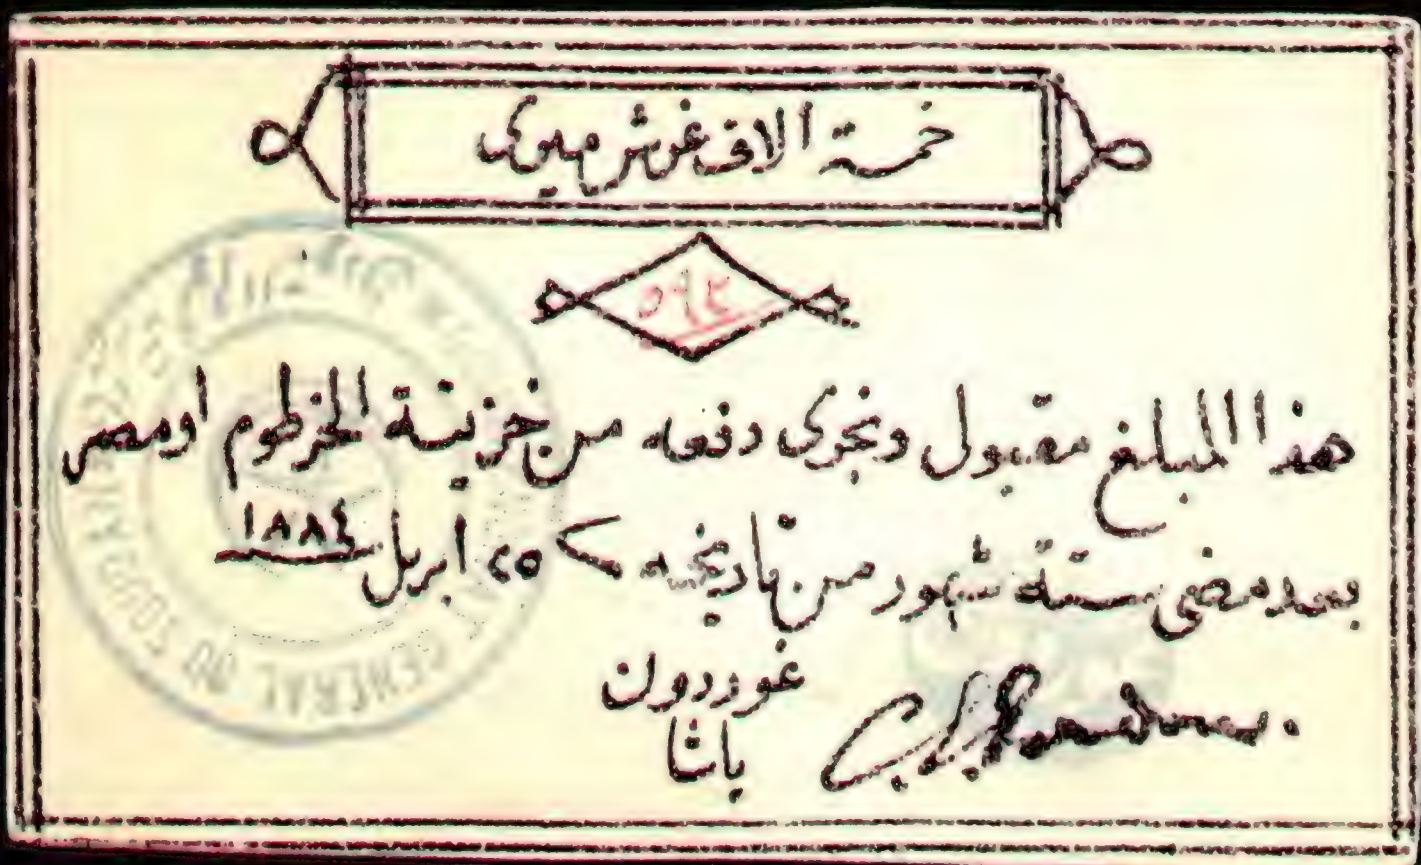 خمسة الاف غرش ميرى
٥٩٢
هذا المبلغ مقبول ويجرى دفعه من خزينة الخرطوم او مصر
بعد مضى ستة شهور من تاريخه ٢٥ ابريل ١٨٨٤
غوردون
باشا
GENERAL DU SOUDAN